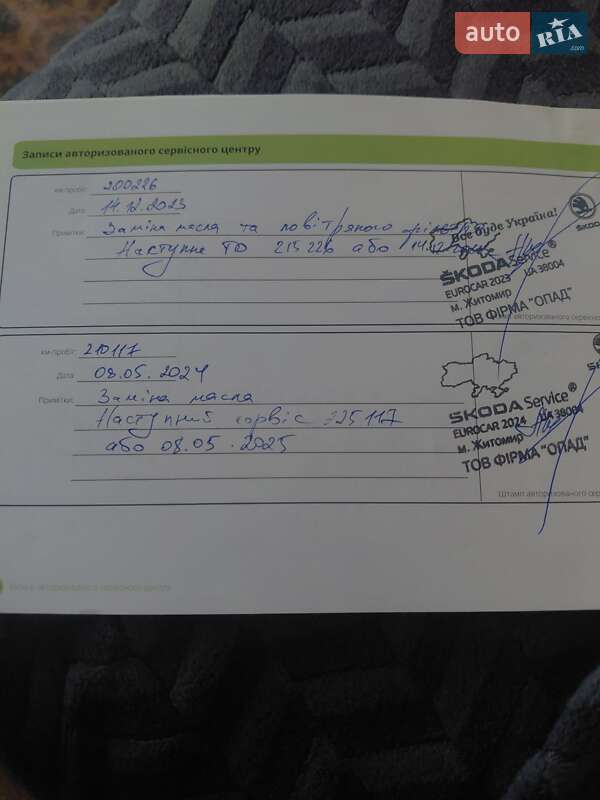 auto RIA.com
Записи авторизованого сервісного центру
км-пробіг: 200226
Дата: 14.12.2023
Примітки: Заміна масла та повітряного фільтра
Наступне ТО 215.226 або 14.12
Все буде Україна!
ŠKODA
ŠKODA Service®
EUROCAR 2023 UA 38004
м. Житомир
ТОВ ФІРМА "ОПАД"
авторизованого сервісно
км-пробіг: 210117
Дата: 08.05.2024
Примітки: Заміна масла
Наступний сервіс 225117
або 08.05.2025
ŠKODA Service®
EUROCAR 2024 UA 38004
м. Житомир
ТОВ ФІРМА "ОПАД"
Штамп авторизованого серв
авторизованого сервісного центру